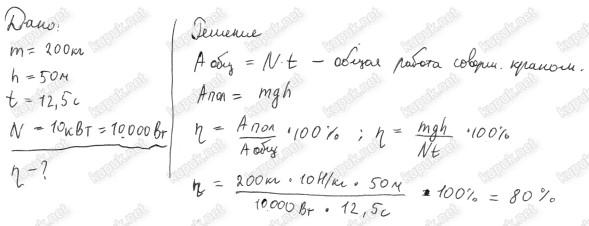 Дано:
m = 200кг
h = 50м
t = 12,5с
N = 10кВт = 10000Вт
η - ?
Решение
Aобщ = N·t – общая работа соверш. краном.
Aпол = mgh
η = Aпол / Aобщ · 100% ; η = mgh / Nt · 100%
η = 200кг · 10Н/кг · 50м / 10000Вт · 12,5с · 100% = 80%
kupuk.net